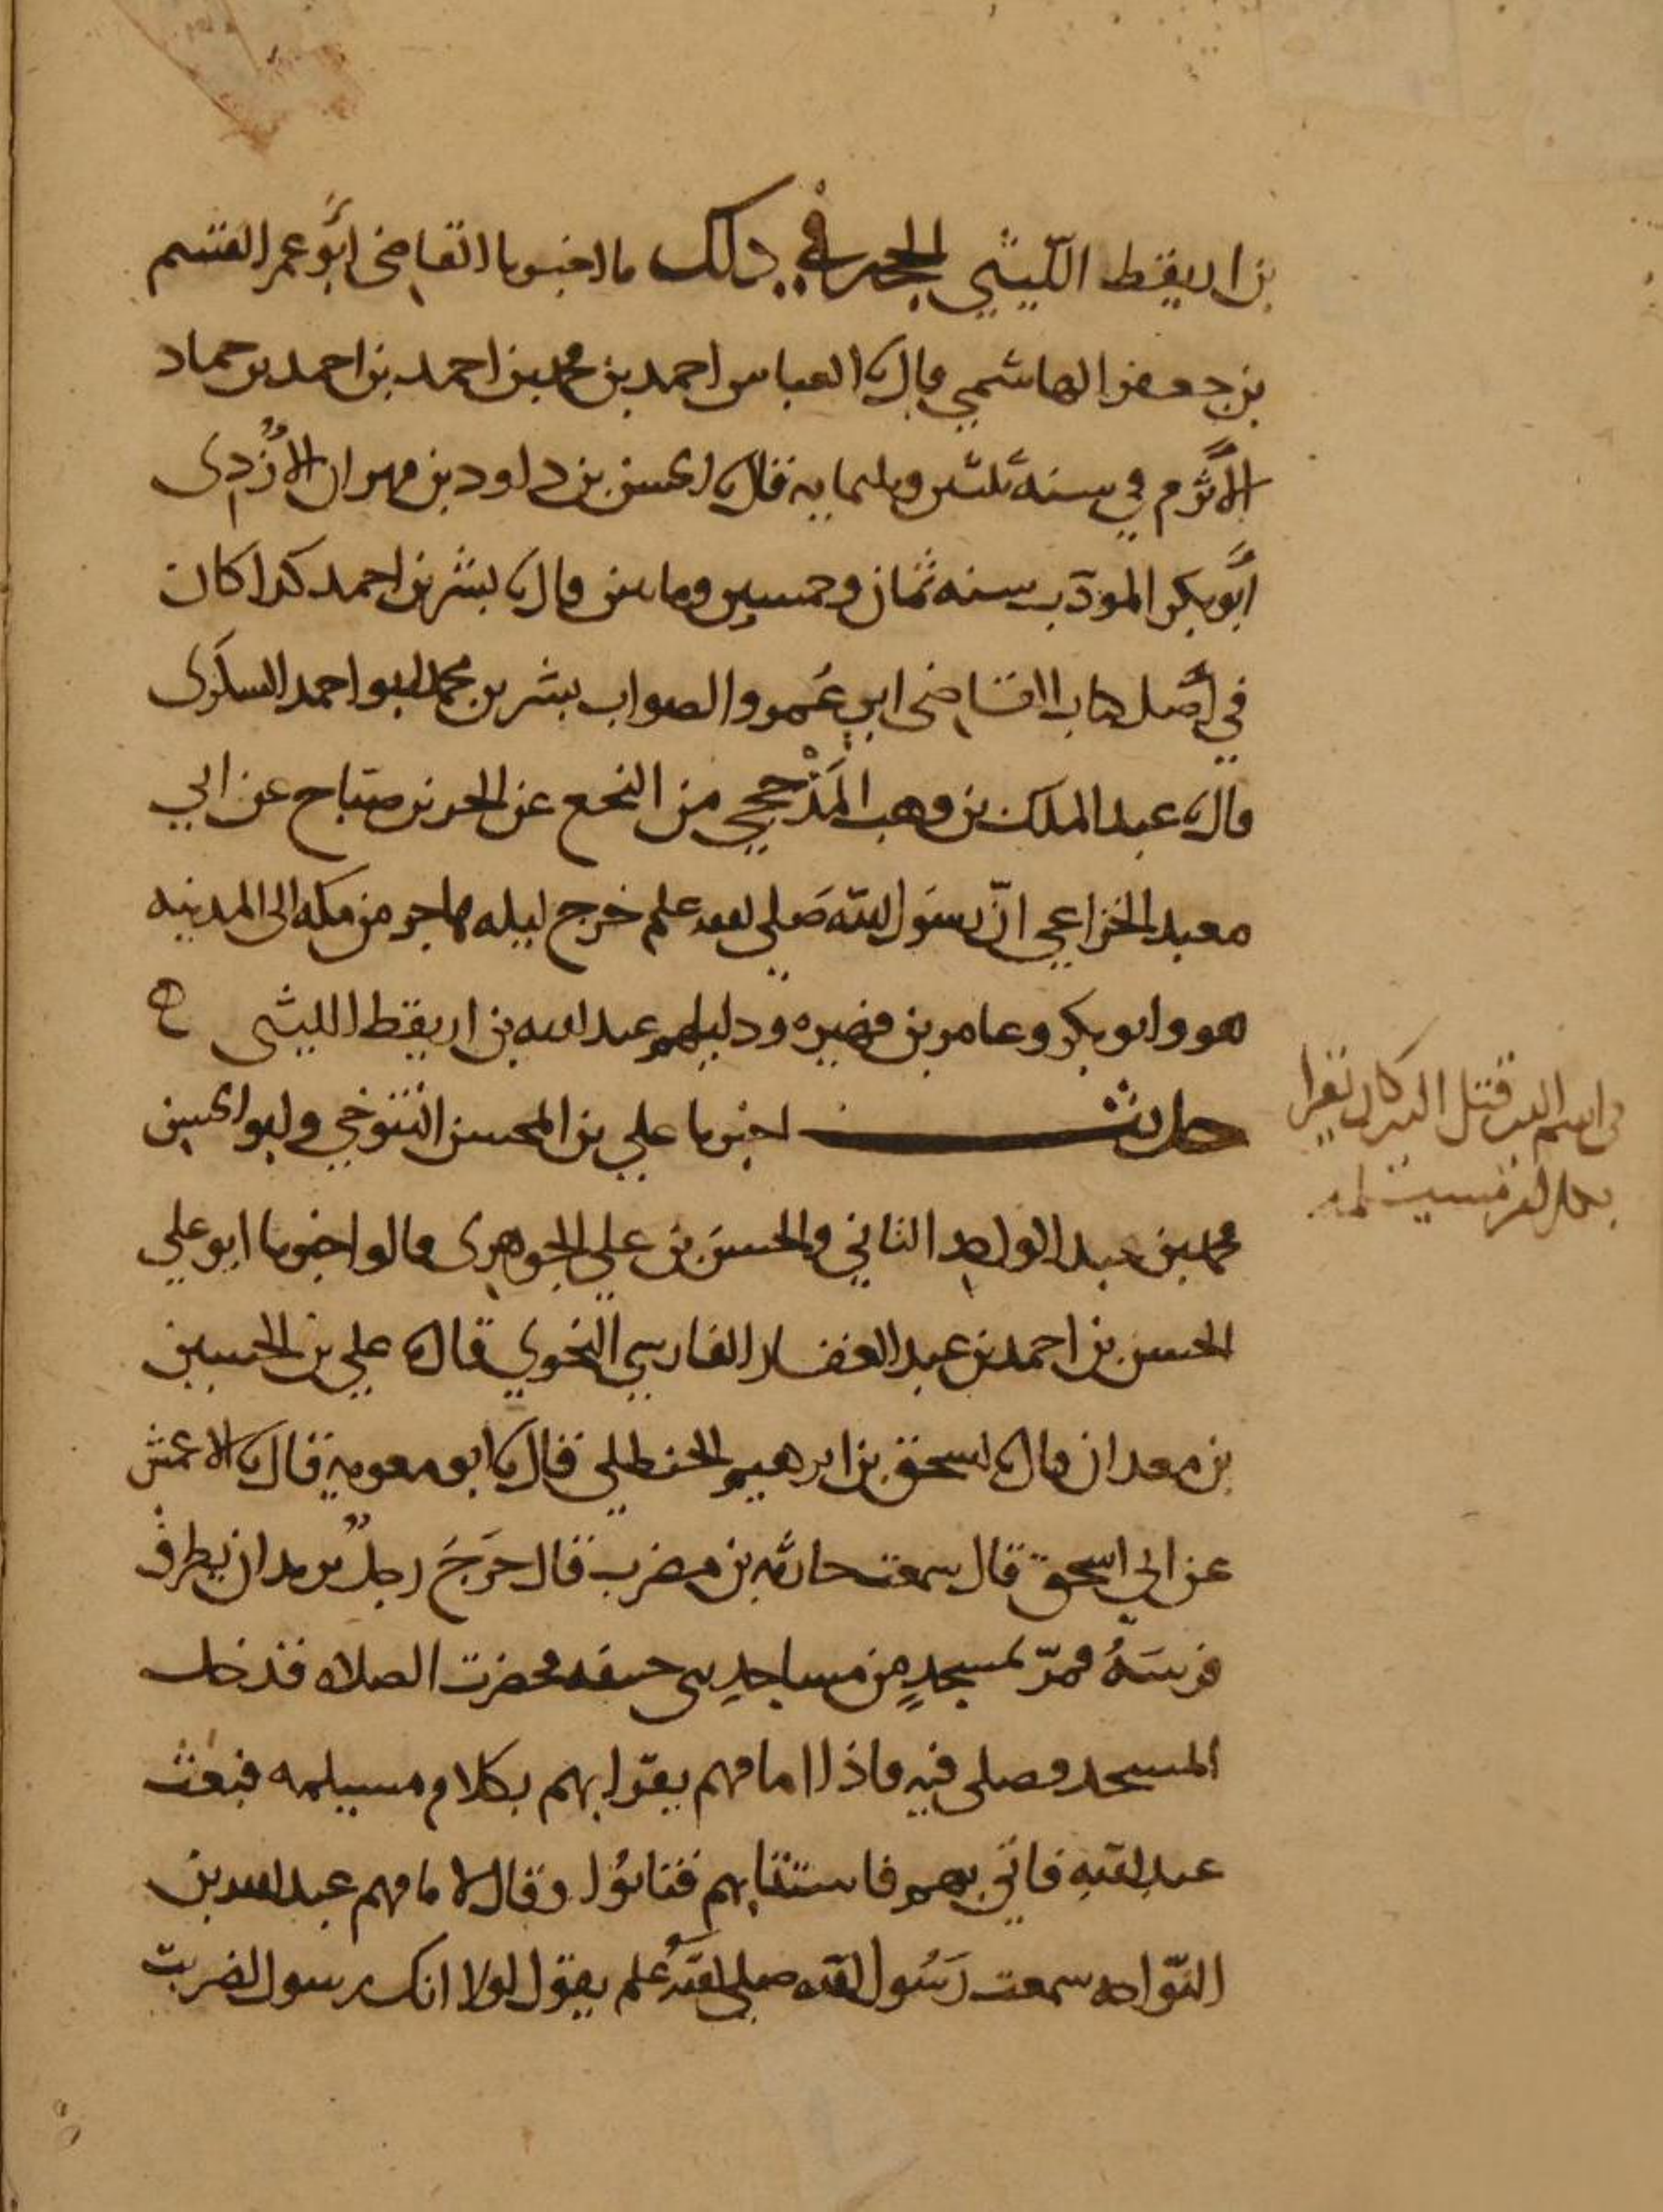 بن اريقط الليثي الحجه في ذلك ما اخبرنا القاضى أبو عمر القسم
بن جعفر الهاشمي قال نا العباس احمد بن محمد بن احمد بن احمد بن حماد
الأثرم في سنة ثلثين وثلثمايه قال نا الحسن بن داود بن مهران الأزدى
أبو بكر المودب سنه ثمان وخمسين وماتين قال نا بشر بن احمد كدا كان
في أصل كتاب القاضى ابي عُمر والصواب بشر بن محمد ابو احمد السكرى
قال نا عبد الملك بن وهب المَذْحجي من النخع عن الحر بن صياح عن ابي
معبد الخزاعي انّ رسول الله صلى الله علم خرج ليله هاجر من مكه الى المدينه
هو وابو بكر وعامر بن فهيره ودليلهم عبد الله بن اريقط الليثى ح
حديث اخبرنا علي بن المحسن التنوخي وابو الحسين
محمد بن عبد الواحد الثاني والحسن بن علي الجوهرى قالوا اخبرنا ابو علي
الحسن بن احمد بن عبد الغفار الفارسي النحوي قال نا علي بن الحسين
بن معدان قال نا اسحق بن ابرهيم الحنظلي قال نا ابو معويه قال نا الاعمش
عن ابي اسحق قال سمعت حارثه بن مضرب قال خرَجَ رجلٌ يريد ان يطرق
فرسَهُ فمرّ بمسجدٍ من مساجد بني حنيفه فحضرت الصلاه فدخل
المسجد فصلى فيه فاذا امامهم يقرا بهم بكلام مسيلمه فبعث
عبد الله فاتي بهم فاستتابهم فتابُوا وقال لامامهم عبد الله بن
النوّاحه سمعت رَسُول الله صلى الله علم يقول لولا انك رسول لضربت
في اسم الذي قتل الذي كان يقرا